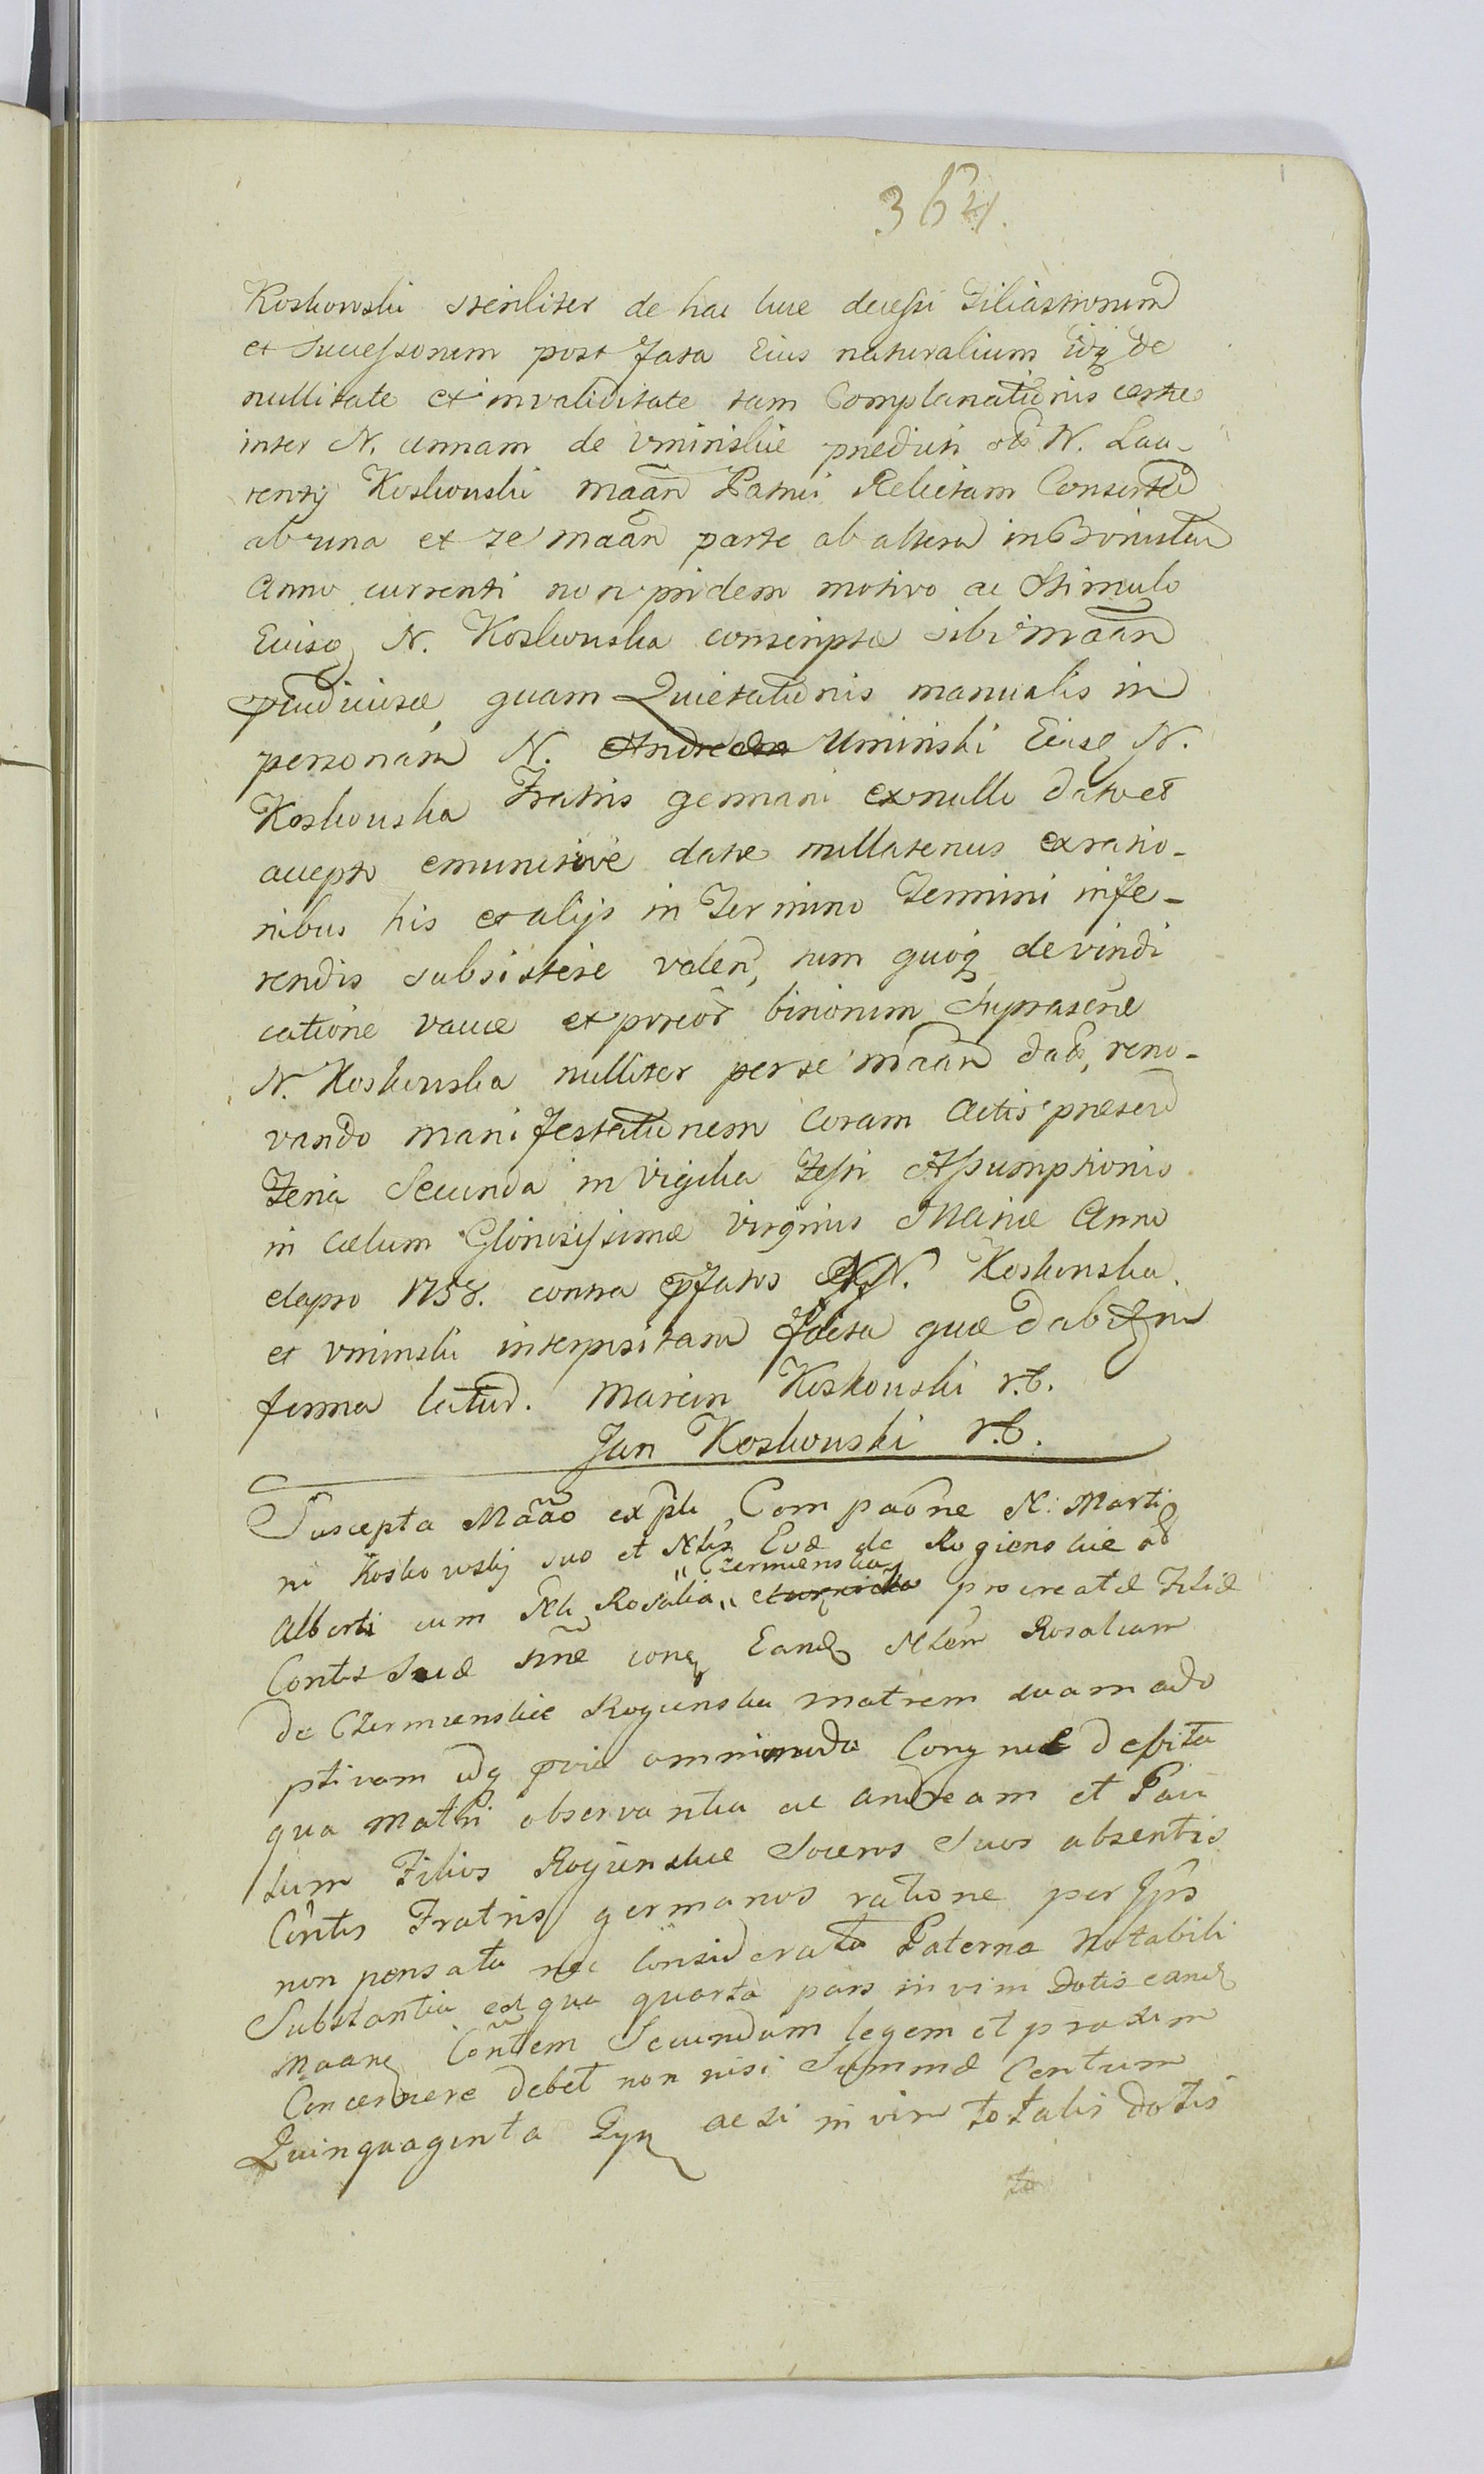 364.
Koskowski steriliter de hac luce decessi Filiastrorum
et Successorum post fata Eius naturalium idq de
nullitate et invaliditate tam Complanationis certæ
inter N. Annam de Uminskie prædicti N. Lau-
rentij Koskowski Maãn Patrui Relictam Consortem
ab una et se maãn parte ab altera in
Anno currenti non pridem motivo ac Stimulo
Eiusq N. Koskowska conscriptæ sibi maãn
quam Quietationis manualis in
personam N. Uminski Eiusq N.
Koskowska Fratris germani ex nullo dato et
accepto emunitive datæ nullatenus ex ratio-
nibus his et alijs in Termino Termini infe-
rendis subsistere valen, tum quoq de vindi
catione vacuæ et porcior bisionum Suprascrie
N. Koskowska nulliter per se maãn dat, reno-
vando manifestationem Coram Actis præsen
Feria Secunda in Vigilia Festi Assumptionis
in Cælum Gloriosissimæ Virginis Mariæ Anno
elapso 1758. contra pfatos NN. Koskowska
et Uminski interpositam
forma latiud. Marcin Koskowski r.t.
Jan Koskowski r.t.
Suscepta Maão ex pli Compaõne N. Marti
ni Koskowskij suo et Nlis Evæ de Rogienskie ol
"Czermienska"
Alberti cum Nli Rosalia " procreatæ Filiæ
Contis Suæ nõe conq Eandq Nlem Rosaliam
de Czermienskie Rogienska matrem suam ado
ptivam idq omnimoda debita
qua Matri observantia ac Andream et Pau
lum Filios Rogienskie Soceros Suos absentis
Contis Fratris germanos ratione per Ips
non pensata nec Considerata Paterna Notabili
Substantia ex qua quarta pars in vim Dotis eandq
Maanq Contem Secundum legem et praxim
Concernere debet non nisi Summæ Centum
Quinquaginta ac si in vim totalis dotis
to